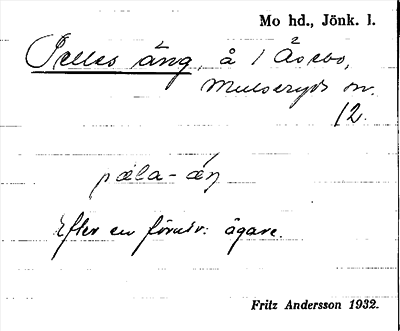 Mo hd., Jönk. l.
Pelles äng, å 1 Åsebo,
Mulseryds sn.
12.
pæla-äŋ
Efter en förutv: ägare.
Fritz Andersson 1932.